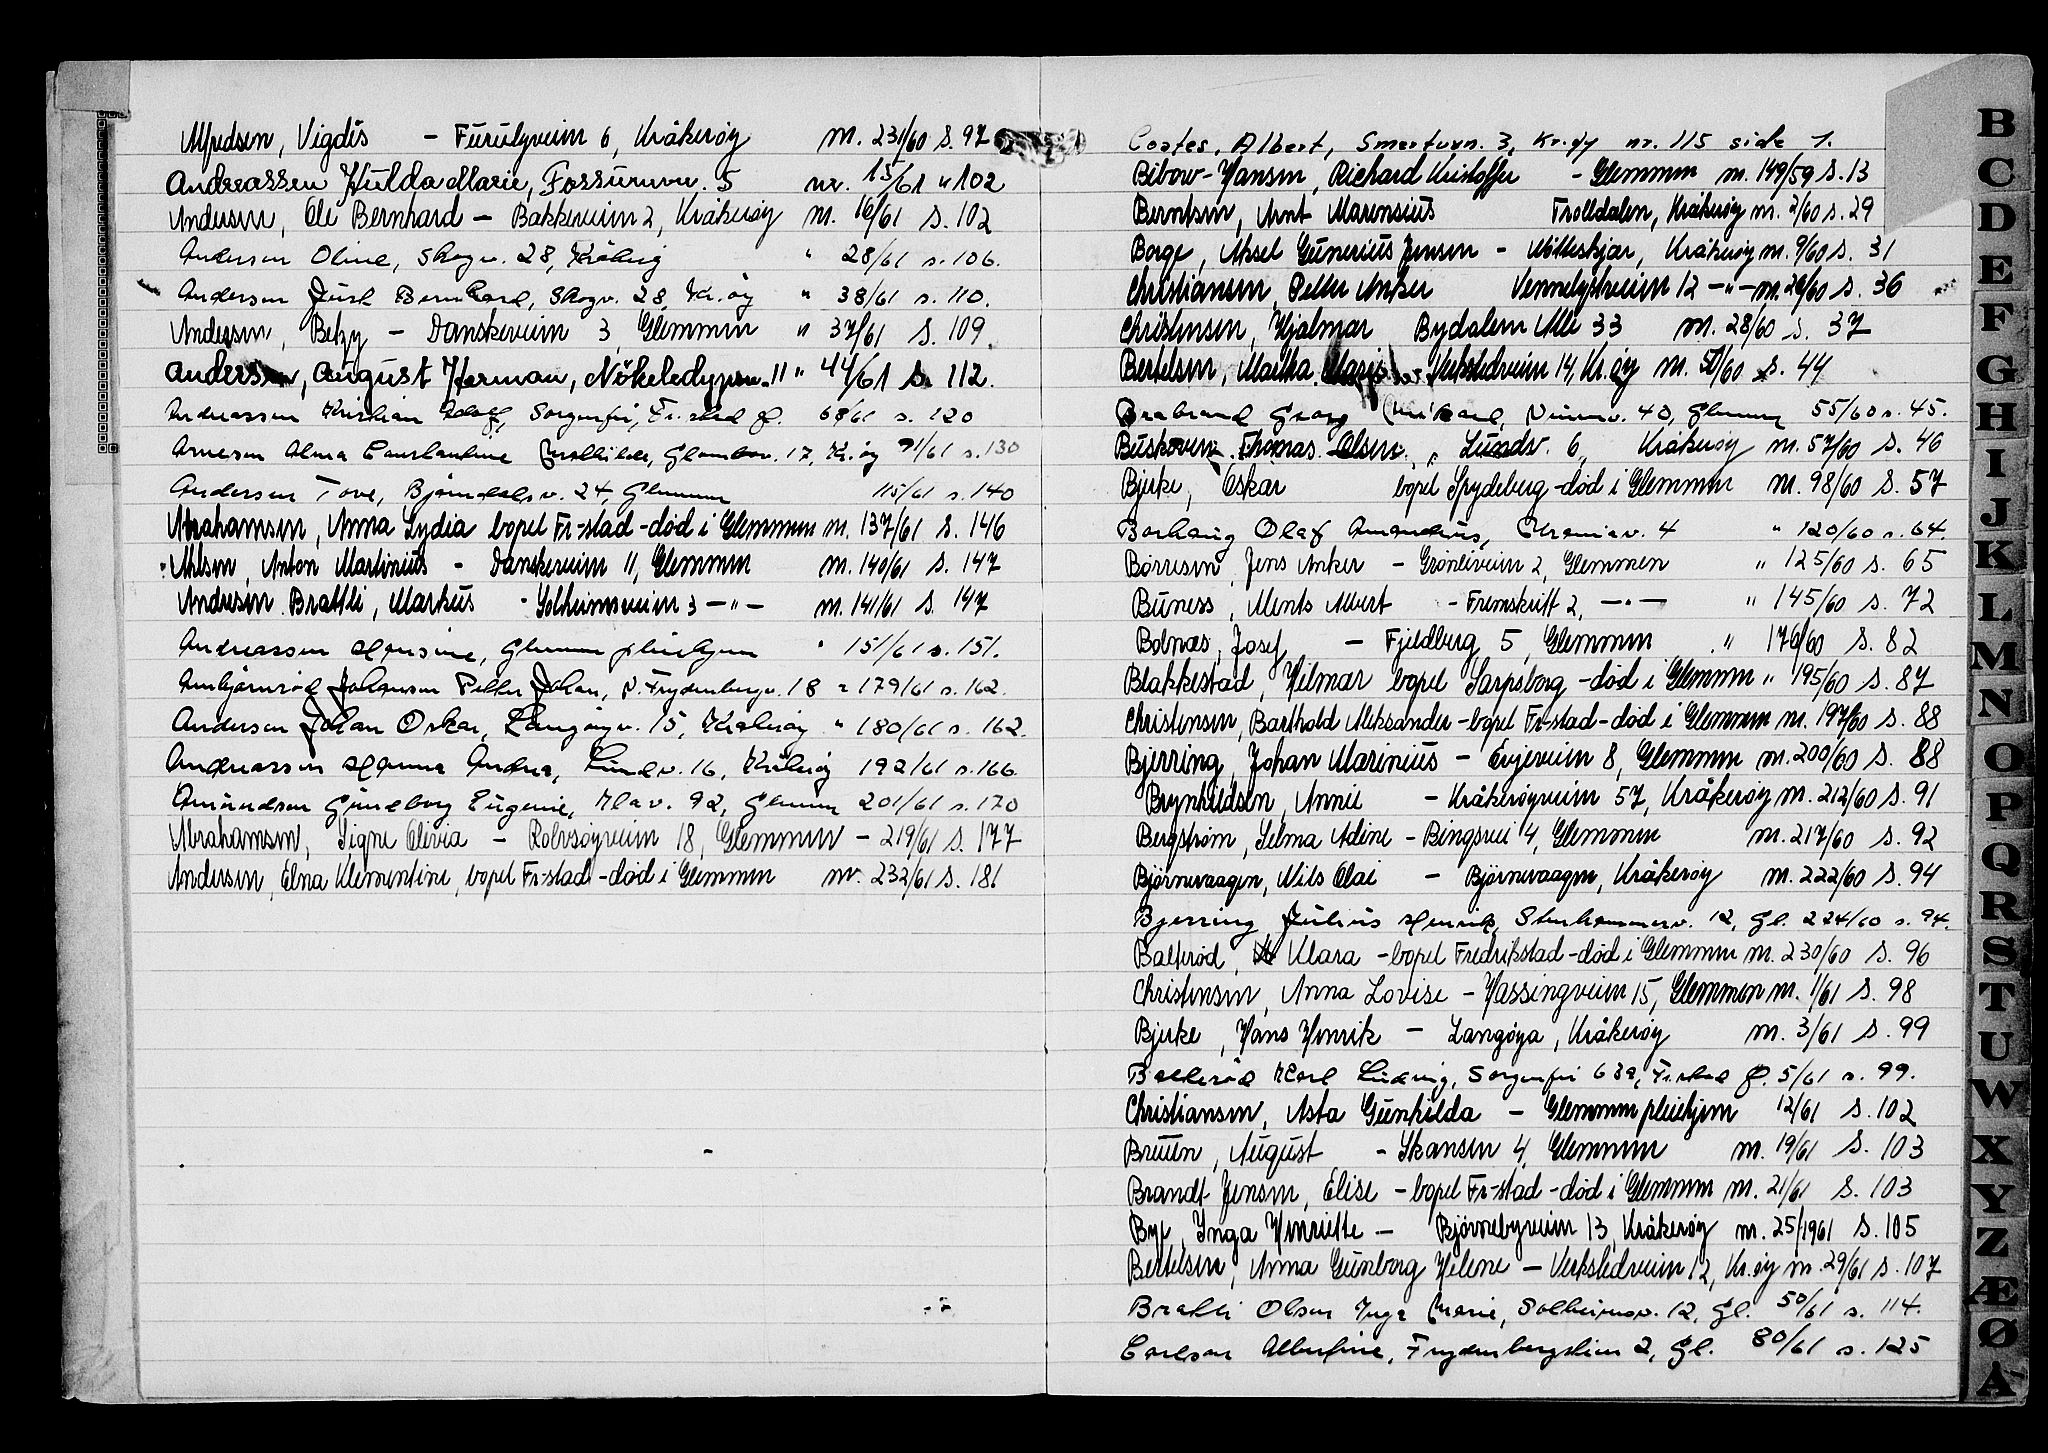 Alfredsen, Vigdis - Furulyveien 6, Kråkerøy nr. 231/60 s. 97
Andreassen Hulda Marie, Fossumvn. 5 nr. 13/61 " 102
Andersen, Ole Bernhard - Bakkeveien 2, Kråkerøy nr. 16/61 s. 102
Andersen Oline, Skogv. 28, Kråkerøy " 28/61 s. 106.
Andersen Juul Bernhard, Skogv. 28, Kr.øy " 38/61 s. 110.
Andersen, Betzy - Danskeveien 3, Glemmen " 37/61 s. 109
Andersen, August Herman, Nökeledypvn. 11 " 44/61 s. 112.
Andreassen Kristian Adolf, Sorgenfri, Fr.stad gl. 68/61 s. 120
Arnesen Alma Constantine Mathilde, Glombov. 17, Kr.øy 91/61 s. 130
Andersen Tove, Bjørndalsv. 24, Glemmen 115/61 s. 140
Abrahamsen, Anna Lydia bopel Fr-stad - død i Glemmen nr. 137/61 s. 146
Ahlsen, Anton Martinius - Danskeveien 11, Glemmen nr. 140/61 s. 147
Andresen Brattli, Markus - Solheimveien 3 - " - nr. 141/61 s. 147
Andreassen Hansine, Glemmen pleiehjem " 151/61 s. 151.
Arnbjørnrød Johansen Petter Johan, N. Frydenbergv. 18 " 179/61 s. 162.
Andersen Johan Oskar, Langøyv. 15, Kråkerøy " 180/61 s. 162.
Andreassen Hanna Andrea, Lundv. 16, Kråkerøy 192/61 s. 166.
Amundsen Gundborg Eugenie, Ilav. 92, Glemmen 201/61 s. 170
Abrahamsen, Signe Olivia - Rolvsøyveien 18, Glemmen - 219/61 s. 177
Andersen, Elna Klementine, bopel Fr-stad - død i Glemmen nr. 232/61 s. 181
Coates, Albert, Smertuvn. 3, Kr.øy nr. 115 side 1.
Bibow-Hansen, Richard Kristoffer - Glemmen nr. 149/59 s. 13
Berntsen, Arnt Marensius Trolldalen, Kråkerøy nr. 2/60 s. 29
Borge, Aksel Gunerius Jensen - Kitteskjær, Kråkerøy nr. 9/60 s. 31
Christiansen, Petter Anker Vennelystveien 12 - " - nr. 26/60 s. 36
Christensen, Hjalmar Bydalen Alle 33 nr. 28/60 s. 37
Bertelsen, Martha Verkstedveien 14, Kr.øy nr. 51/60 s. 44
Brabrand Georg Mikael, Veumv. 40, Glemmen 55/60 s. 45.
Buskoven Thomas Olsen, Lundv. 6, Kråkerøy nr. 57/60 s. 46
Bjerke, Oskar bopel Spydeberg - død i Glemmen nr. 98/60 s. 57
Borhaug Olaf Amandius, Uraniav. 4 " 120/60 s. 64.
Børresen, Jens Anker - Grønliveien 2, Glemmen " 125/60 s. 65
Buness, Ments Albert - Fremskritt 2, - " - " 145/60 s. 72
Bolnæs, Josef - Fjeldberg 5, Glemmen " 176/60 s. 82
Blakkestad, Hilmar bopel Sarpsborg - død i Glemmen " 195/60 s. 87
Christensen, Barthold Aleksander - bopel Fr-stad - død i Glemmen nr. 197/60 s. 88
Bjerring, Johan Marinius - Evjeveien 8, Glemmen nr. 200/60 s. 88
Brynhildsen, Annie - Kråkerøyveien 57, Kråkerøy nr. 212/60 s. 91
Bergstrøm, Selma Adine - Bingsvei 4, Glemmen nr. 217/60 s. 92
Bjørnevaagen, Nils Olai - Bjørnevaagen, Kråkerøy nr. 222/60 s. 94
Bjerring Julius Henrik, Stenhammerv. 12, Gl. 224/60 s. 94.
Balterød, Klara - bopel Fredrikstad - død i Glemmen nr. 230/60 s. 96
Christensen, Anna Lovise - Hassingveien 15, Glemmen nr. 1/61 s. 98
Bjerke, Hans Henrik - Langøya, Kråkerøy nr. 3/61 s. 99
Ballerød Karl Ludvig, Sorgenfri 63a, Fr.stad gl. 5/61 s. 99.
Christiansen, Asta Gunhilda - Glemmen pleiehjem 12/61 s. 102
Bruun, August - Skansen 4, Glemmen nr. 19/61 s. 103
Brandt Jensen, Elise - bopel Fr-stad - død i Glemmen nr. 21/61 s. 103
Bye, Inga Henriette - Bjørnebyveien 13, Kråkerøy nr. 25/1961 s. 105
Bertelsen, Anna Gunborg Helene - Verkstedveien 12, Kr.øy nr. 29/61 s. 107
Bratli Olsen Inga Marie, Solheimsv. 12, Gl. 50/61 s. 114.
Carlson Albertine, Frydenberglien 2, Gl. 80/61 s. 125
B
C
D
E
F
G
H
I
J
K
L
M
N
O
P
Q
R
S
T
U
W
X
Y
Z
Æ
Ø
Å